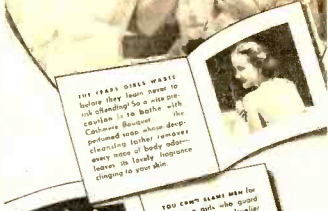 THE YEARS GIRLS WASTE
before they learn never to
risk offending! So a wise pre-
caution is to bathe with
Cashmere Bouquet the
perfumed soap whose deep-
cleansing lather removes
every trace of body odor—
leaves its lovely fragrance
clinging to your skin.
YOU CAN'T BLAME MEN for
girls who guard